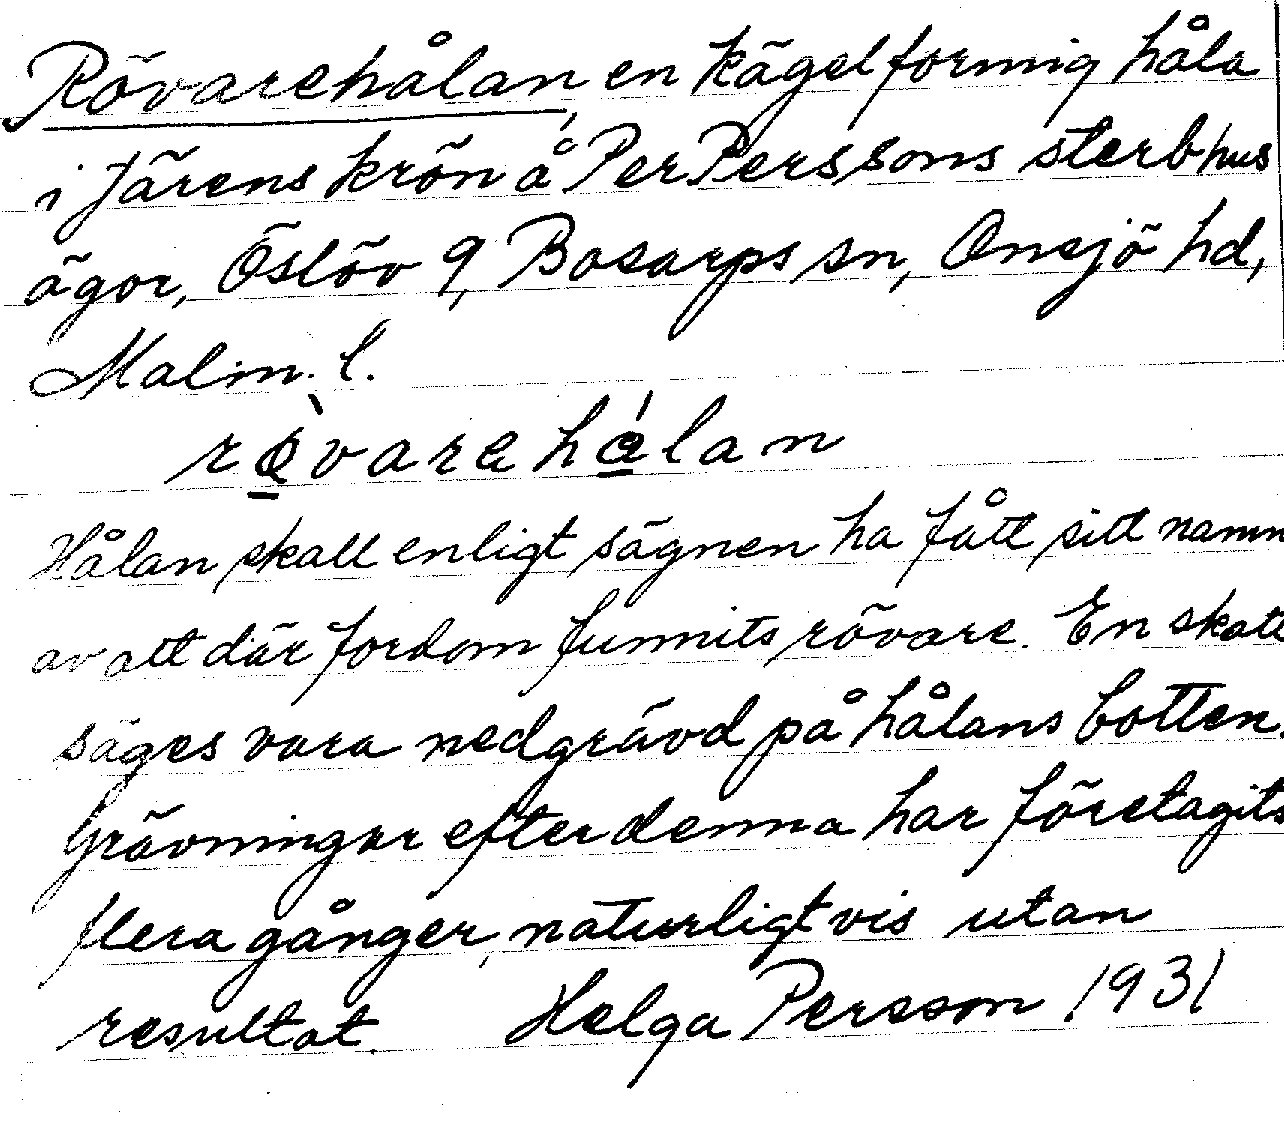 Rövarehålan, en kägelformig håla
i Järens krön å Per Perssons sterbhus
ägor, Öslöv 9, Bosarps sn, Onsjö hd,
Malm. l.
Hålan skall enligt sägnen ha fått sitt namn
av att där fordom funnits rövare. En skatt
säges vara nedgrävd på hålans botten.
Grävningar efter denna har företagits
flera gånger, naturligtvis utan
resultat. Helga Persson 1931